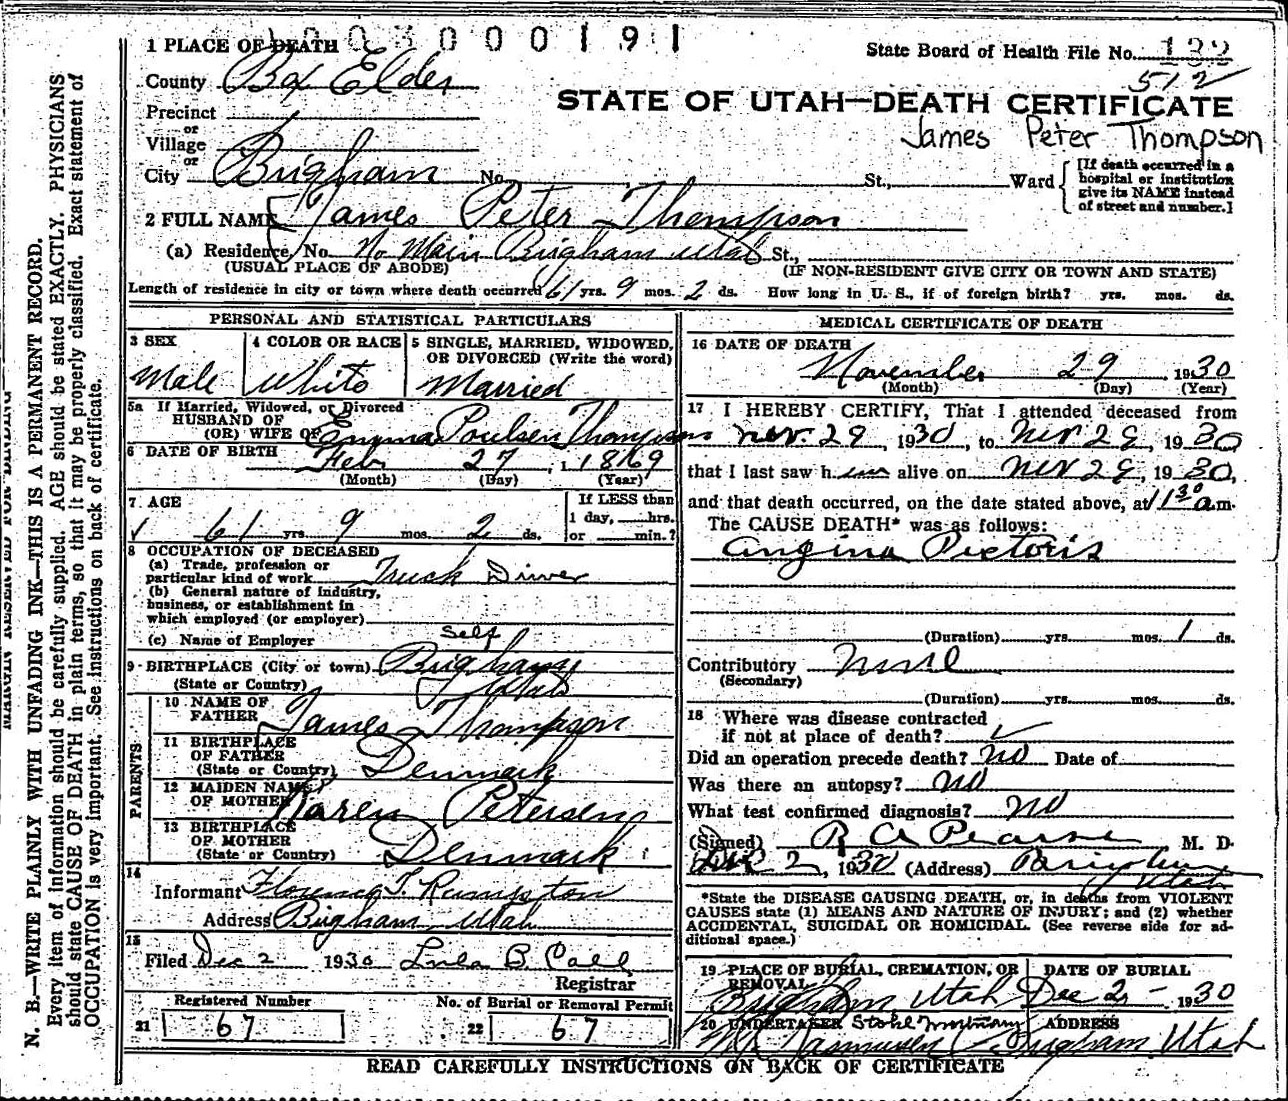 003000191
1 PLACE OF DEATH
State Board of Health File No. 132
512
County Box Elder
STATE OF UTAH—DEATH CERTIFICATE
Precinct
or
James Peter Thompson
Village
or
City Brigham No. St., Ward
[If death occurred in a hospital or institution give its NAME instead of street and number.]
2 FULL NAME James Peter Thompson
(a) Residence, No. No Main Brigham Utah St.,
(USUAL PLACE OF ABODE) (IF NON-RESIDENT GIVE CITY OR TOWN AND STATE)
Length of residence in city or town where death occurred 61 yrs. 9 mos. 2 ds. How long in U. S., if of foreign birth? yrs. mos. ds.
PERSONAL AND STATISTICAL PARTICULARS
3 SEX 4 COLOR OR RACE 5 SINGLE, MARRIED, WIDOWED,
OR DIVORCED (Write the word)
Male White Married
5a If Married, Widowed, or Divorced
HUSBAND OF
(OR) WIFE OF Emma Poulsen Thompson
6 DATE OF BIRTH Feb 27, 1 1869
(Month) (Day) (Year)
7 AGE If LESS than
1 day, hrs.
61 yrs. 9 mos. 2 ds. or min.?
8 OCCUPATION OF DECEASED
(a) Trade, profession or
particular kind of work Truck Driver
(b) General nature of industry,
business, or establishment in
which employed (or employer)
(c) Name of Employer Self
9 BIRTHPLACE (City or town) Brigham
(State or Country) Utah
PARENTS
10 NAME OF
FATHER James Thompson
11 BIRTHPLACE
OF FATHER
(State or Country) Denmark
12 MAIDEN NAME
OF MOTHER Karen Petersen
13 BIRTHPLACE
OF MOTHER
(State or Country) Denmark
14
Informant Florence T. Rampton
Address Brigham Utah
15
Filed Dec 2 1930 Lula B. Call
Registrar
Registered Number No. of Burial or Removal Permit
21 67 22 67
MEDICAL CERTIFICATE OF DEATH
16 DATE OF DEATH
November 29, 1930
(Month) (Day) (Year)
17 I HEREBY CERTIFY, That I attended deceased from
Nov. 29, 1930, to Nov 29, 1930
that I last saw him alive on Nov 29, 1930,
and that death occurred, on the date stated above, at 1 30 a.m.
The CAUSE DEATH* was as follows:
Angina Pectoris
(Duration) yrs. mos. 1 ds.
Contributory None
(Secondary)
(Duration) yrs. mos. ds.
18 Where was disease contracted
if not at place of death?
Did an operation precede death? no Date of
Was there an autopsy? no
What test confirmed diagnosis? no
(Signed) R A Pearse M. D.
Dec 2, 1930 (Address) Brigham
Utah
*State the DISEASE CAUSING DEATH, or, in deaths from VIOLENT
CAUSES state (1) MEANS AND NATURE OF INJURY; and (2) whether
ACCIDENTAL, SUICIDAL OR HOMICIDAL. (See reverse side for ad-
ditional space.)
19 PLACE OF BURIAL, CREMATION, OR DATE OF BURIAL
REMOVAL
Brigham Utah Dec 2 - 1930
20 UNDERTAKER Stohl Mortuary ADDRESS
Rasmussen Brigham Utah
READ CAREFULLY INSTRUCTIONS ON BACK OF CERTIFICATE
N. B.—WRITE PLAINLY WITH UNFADING INK—THIS IS A PERMANENT RECORD.
Every item of information should be carefully supplied. AGE should be stated EXACTLY. PHYSICIANS
should state CAUSE OF DEATH in plain terms, so that it may be properly classified. Exact statement of
OCCUPATION is very important. See instructions on back of certificate.